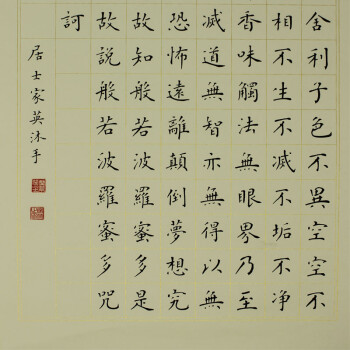 舍利子色不異空空不
相不生不滅不垢不净
香味觸法無眼界乃至
滅道無智亦無得以無
恐怖遠離顛倒夢想究
故知般若波羅蜜多是
故說般若波羅蜜多咒
訶
居士家英沐手